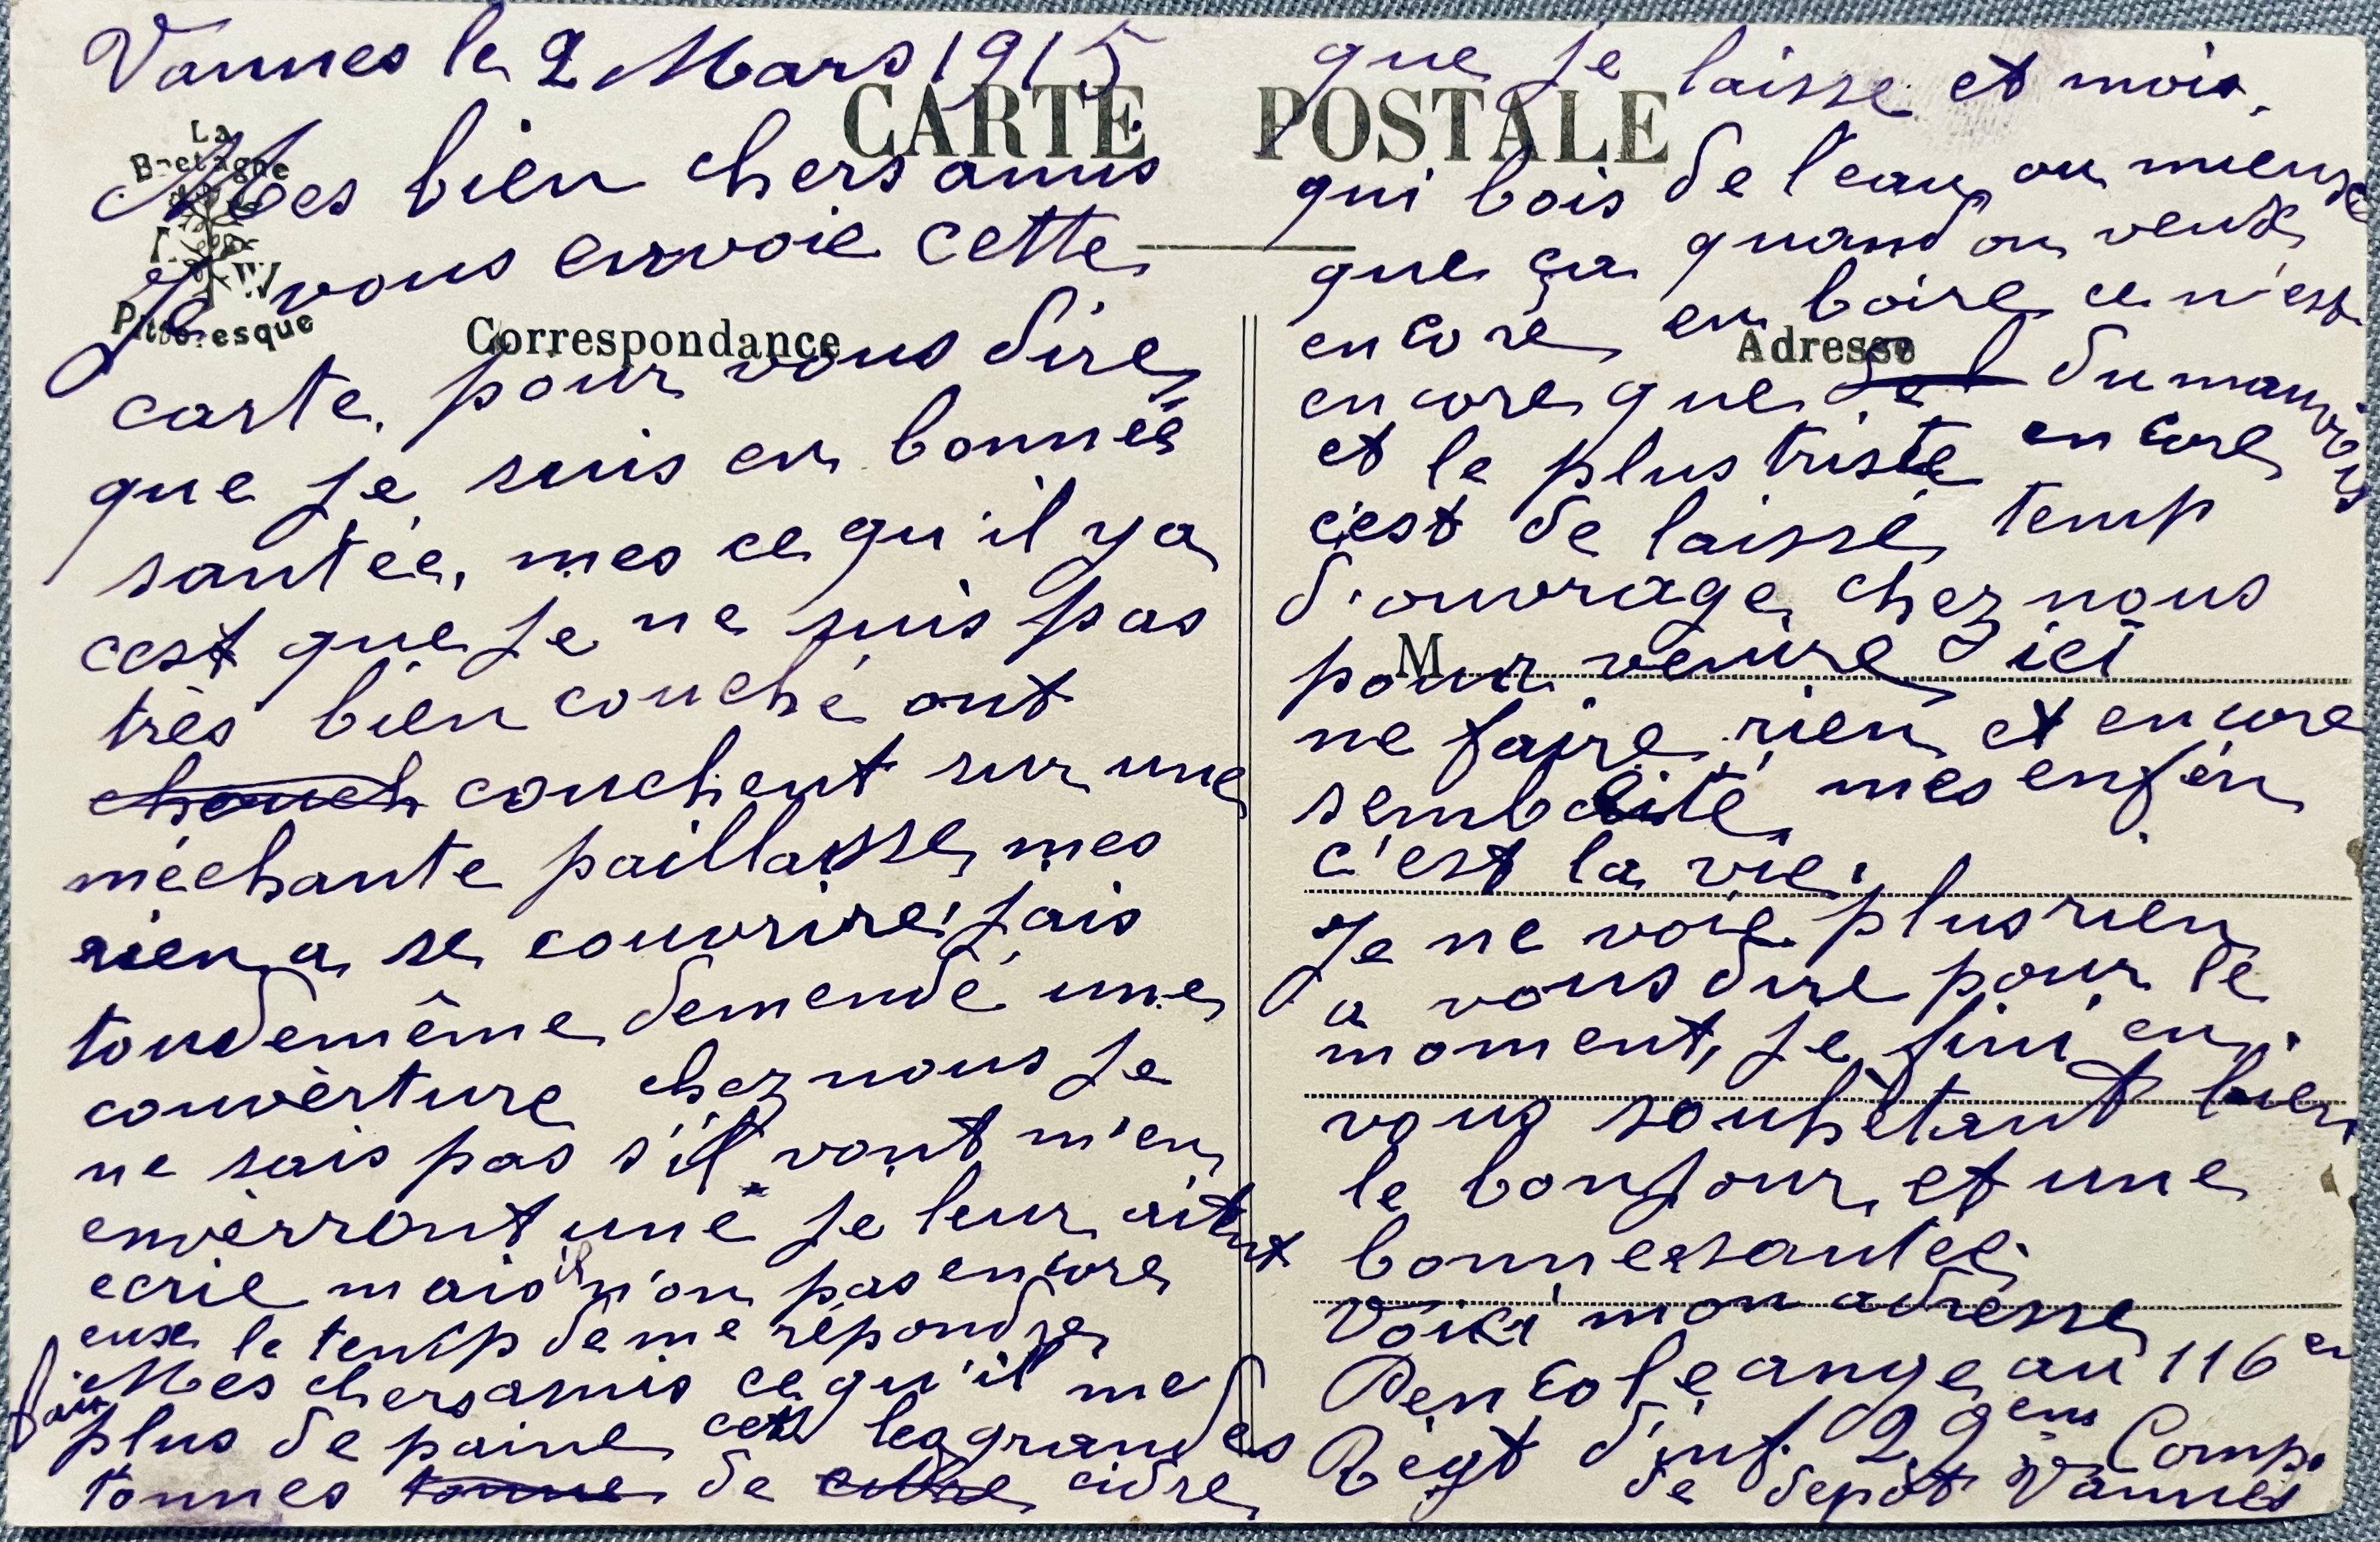 CARTE POSTALE
La
Bretagne
Pittoresque
Correspondance
Adresse
M
Vannes le 2 Mars 1915
Mes bien chers amis
Je vous envoie cette
carte. pour vous dire
que je suis en bonnée
santée, mes ce qu'il y a
cest que je ne suis pas
très bien couché ont
chouch couchent sur une
méchante paillasse, mes
rien a se couvrire, jais
toudemême demendé une
couvèrture chez nous je
ne sais pas s'il vont m'en
enverront une je leur ait
ecrie mais il n'on pas encore
eux le temp de me répondre
Mes chers amis ce qu'il me
fait plus de paine cett les grandes
tonnes tonne de cidre
que je laisse et mois,
qui bois de l'eau ou mieux
que ça quand on veux
encore en boire ce n'est
encore que du mauvais
et le plus triste encore
c'est de laissé temp
d'ouvrage chez nous
pour venire d'ici
ne faire rien et encore
mes enfin
c'est la vie.
Je ne voie plus rien
a vous dire pour le
moment, je fini en
vous souhètant bien
le bonjour et une
bonne santée.
Voici mon adrèsse
ange au 116e
Règt d'inf. 29em Comp.
de depôt Vannes